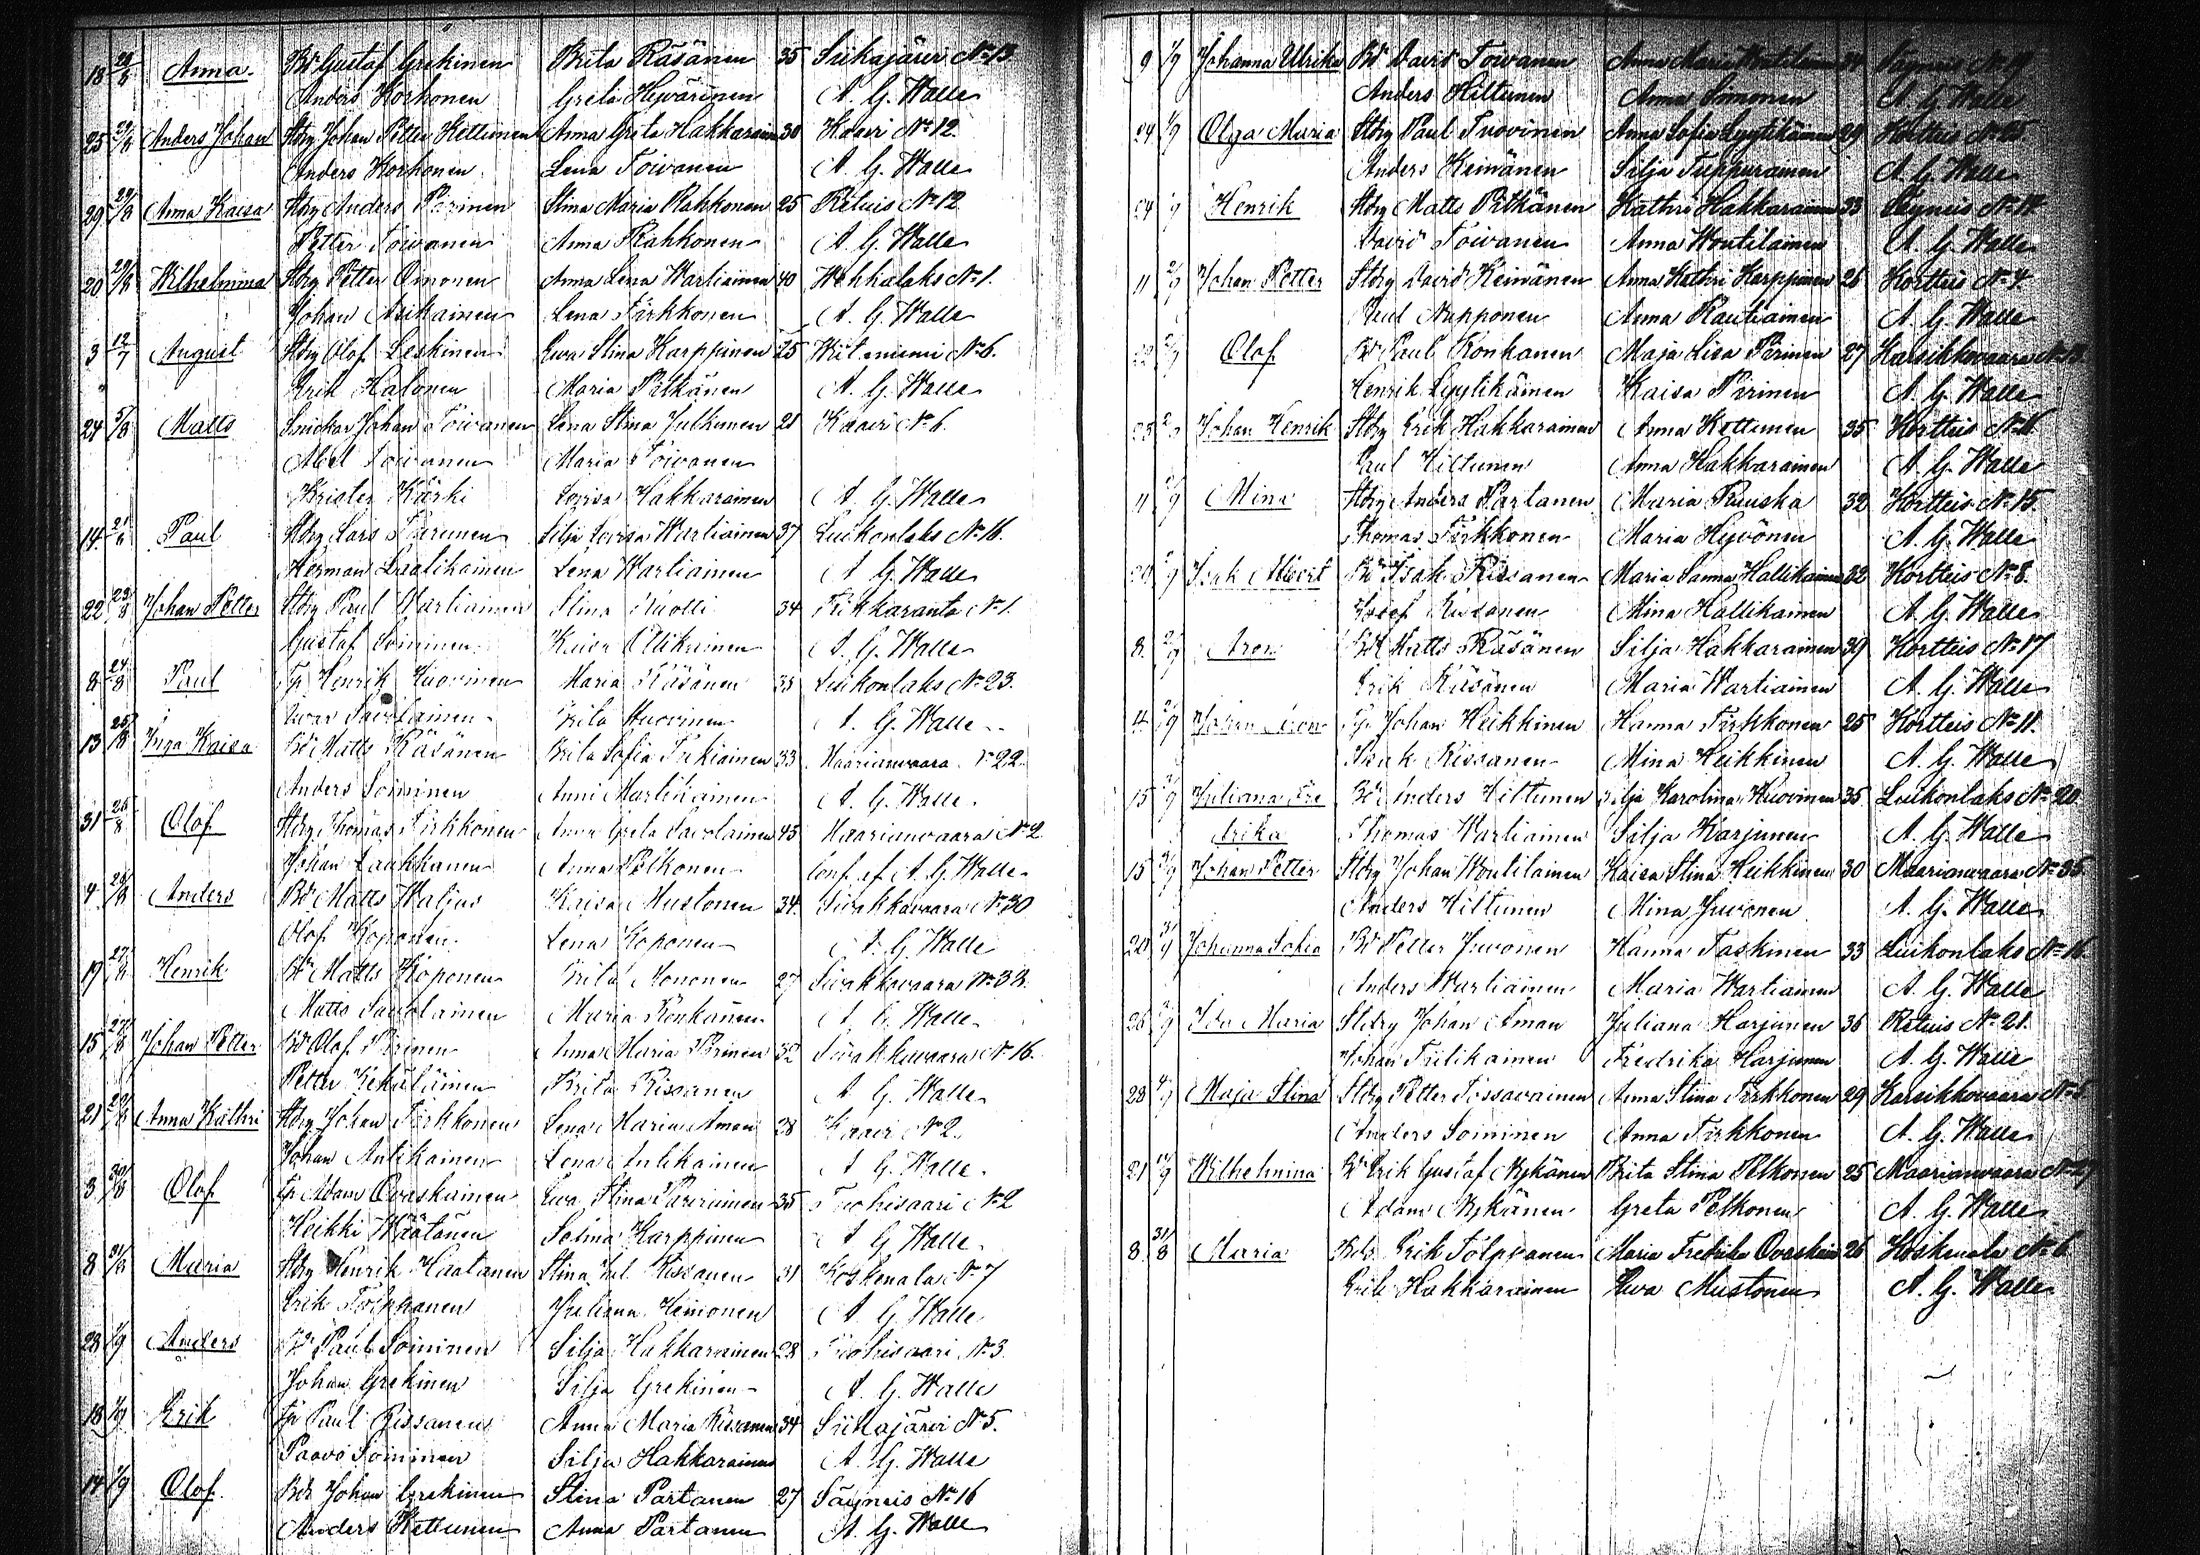 18 28/8 Anna. Bd Gustaf Grekinen Brita Räsänen 35 Siikajärvi No 13
Anders Korhonen Greta Hyvärinen A. G. Walle
25 29/8 Anders Johan Stbrg Johan Petter Hiltunen Anna Greta Hakkarainen 30 Kaavi No 12.
Anders Korhonen Lena Toivanen A. G. Walle
29 29/8 Anna Kaisa Stbrg Anders Pirinen Stina Maria Rahkonen 25 Retuis No 12
Petter Toivanen Anna Rahkonen A. G. Walle
20 29/8 Wilhelmina Stbrg Petter Omonen Anna Lena Wartiainen 40 Wehkalaks No 1.
Johan Asikainen Lena Tirkkonen A. G. Walle
3 12/7 August Stbrg Olof Leskinen Ewa Stina Karppinen 25 No 6.
Erik Halonen Maria Pitkänen A. G. Walle
24 5/8 Matts Snickar Johan Toivanen Lena Stina Julkunen 21 Kaavi No 6.
Abel Toivanen Maria Toivanen
Krister Kärki Lovisa Hakkarainen A. G. Walle
14. 21/8 Paul Stbrg Lars Silja Lovisa Wartiainen 37 Luikonlaks No 16.
Herman Laatikainen Lena Wartiainen A. G. Walle
22 23/8 Johan Petter Stbrg Paul Wartiainen Stina Ruotti 34 Rikkaranta No 1.
Gustaf Soininen Kaisa Ollikainen A. G. Walle
8 24/8 Paul Tp Henrik Huovinen Maria Räsänen 35 Luikonlaks No 23.
Iwar Savolainen Brita Huovinen A. G. Walle
13 25/8 Inga Kaisa Bd Matts Räsänen Brita Sofia 33 Maarianvaara No 22.
Anders Soininen Anni Martikainen A. G. Walle
31 26/8 Olof Stbrg Thomas Tirkkonen Anna Greta Savolainen 45 Maarianvaara No 2
Johan Laukkanen Anna Pelkonen Conf. af A. G. Walle
4. 26/8 Anders Bd Matts Waljus Kaisa Mustonen 34. Sivakkavaara No 30
Olof Koponen Lena Koponen A. G. Walle
19 27/8 Henrik Bd Matts Koponen Brita Kononen 27 Sivakkavaara No 33.
Matts Savolainen Maria Ronkanen A. G. Walle
15 27/8 Johan Petter Bd Olof Pirinen Anna Maria Pirinen 32 Sivakkavaara No 16.
Petter Kekäläinen Brita Rissanen A. G. Walle
21 29/8 Anna Kathri Stbrg Johan Tirkkonen Lena Maria Aman 38 Kaavi No 2.
Johan Antikainen Lena Antikainen A. G. Walle
3 30/8 Olof Tp Adam Ovaskainen Ewa Stina 35 Tuohisaari No 2
Heikki Wäätänen Selma Karppinen A. G. Walle
8 31/8 Maria Stbrg Henrik Haatanen Stina Jul. Rissanen 31 Koskenala No 7
Erik Tolppanen Juliana Heimonen A. G. Walle
23 1/9 Anders Bd Paul Soininen Silja Hakkarainen 28 Tuohisaari No 3.
Johan Grekinen Silja Grekinen A. G. Walle
18 1/9 Erik Tp Paul Rissanen Anna Maria Rissanen 34 Siikajärvi No 5.
Paavo Soininen Silja Hakkarainen A. G. Walle
14 1/9 Olof. Bd Johan Grekinen Stina Partanen 27 Säyneis No 16
Anders Kettunen Anna Partanen A. G. Walle
9 1/9 Johanna Ulrika Bd David Toivanen Anna Maria Woutilainen
Anders Hiltunen Anna Simonen A. G. Walle
24 1/9 Olga Maria Stbrg Paul Tuovinen Anna Sofia Lyytikäinen 29 Kortteis No 25.
Anders Keinänen Silja Tuppurainen A. G. Walle
Henrik Stbrg Matts Pitkänen Kathri Hakkarainen 33 Säyneis No 14
David Toivanen Anna Woutilainen A. G. Walle
11 2/9 Johan Petter Stbrg David Keinänen Anna Kathri Karppinen 26 Kortteis No 4.
Paul Nupponen Anna Rautiainen A. G. Walle
Olof Bd Paul Konkanen Maja Lisa Pirinen 27 Karsikkovaara
Henrik Lyytikäinen Kaisa Pirinen A. G. Walle
Johan Henrik Stbrg Erik Hakkarainen Anna Kettunen 35 Kortteis No 16
Paul Hiltunen Anna Hakkarainen A. G. Walle
11 2/9 Mina Stbrg Anders Partanen Maria Ruuska 32 Kortteis No 15.
Thomas Tirkkonen Maria Hyvönen A. G. Walle
Isak Albert Bd Isak Rissanen Maria Sanna Hallikainen 32 Kortteis No 8.
Josef Rissanen Mina Hallikainen A. G. Walle
8. 2/9 Aron Bd Matts Räsänen Silja Hakkarainen 39 Kortteis No 17
Erik Räsänen Maria Wartiainen A. G. Walle
4. 2/9 Johan Aron Tp Johan Heikkinen Hanna Tirkkonen 25 Kortteis No 11.
Isak Rissanen Mina Heikkinen A. G. Walle
15 3/9 Juliana Fre Bd Anders Hiltunen Silja Karolina Huovinen 35 Luikonlaks No 20
drika Thomas Wartiainen Silja Karjunen A. G. Walle
15 3/9 Johan Petter Stbrg Johan Woutilainen Kaisa Stina Heikkinen 30 Maarianvaara No 35
Anders Hiltunen Mina Juvonen A. G. Walle
20 3/9 Johanna Sofia Bd Petter Juvonen Hanna Taskinen 33 Luikonlaks No 16
Anders Wartiainen Maria Wartiainen A. G. Walle
26 3/9 Ida Maria Stbrg Johan Aman Juliana Harjunen 36 Retuis No 21.
Johan Fredrika Harjunen A. G. Walle
28 4/9 Maja Stina Stbrg Petter Tossavainen Anna Stina Tirkkonen 29 Karsikkovaara No 5
Anders Soininen Anna Tirkkonen A. G. Walle
21 Wilhelmina Bd Erik Gustaf Nykänen Brita Stina Pelkonen 25 Maarianvaara
Adam Nykänen Greta Pelkonen A. G. Walle
8 31/8 Maria Erik Tolppanen Maria Fredrika Ovaskainen 26 Koskenala No 6
Erik Hakkarainen Ewa Mustonen A. G. Walle